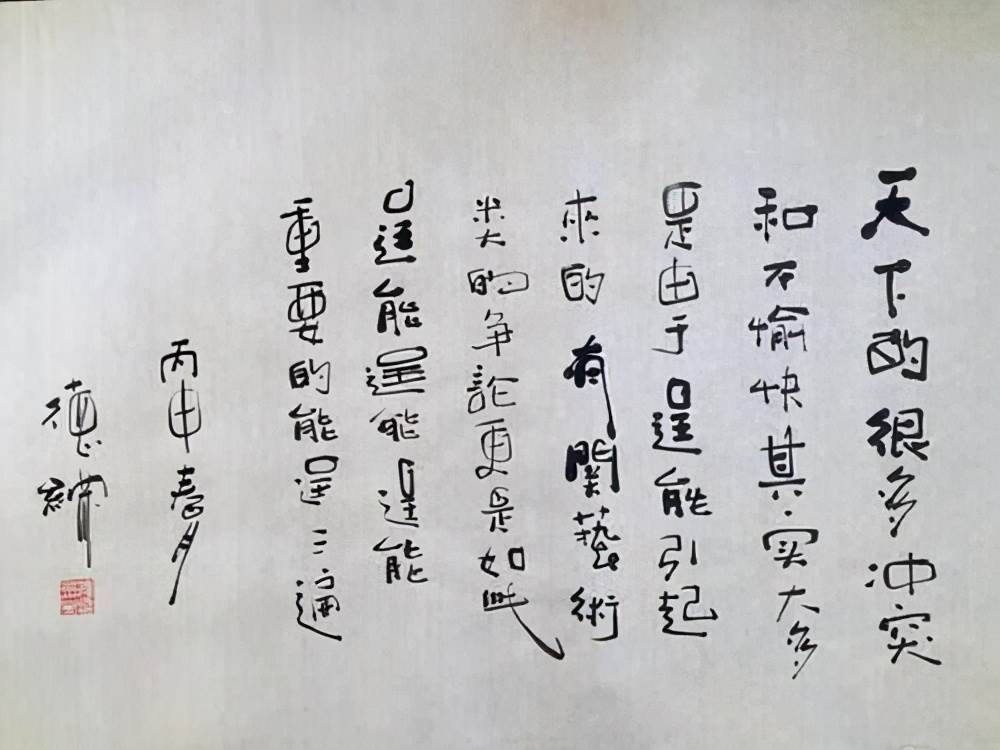 天下的很多冲突
和不愉快其实大多
是由于逞能引起
來的有關藝術
类的争論更是如此
逞能逞能逞能
重要的能逞三遍
丙申春月
德